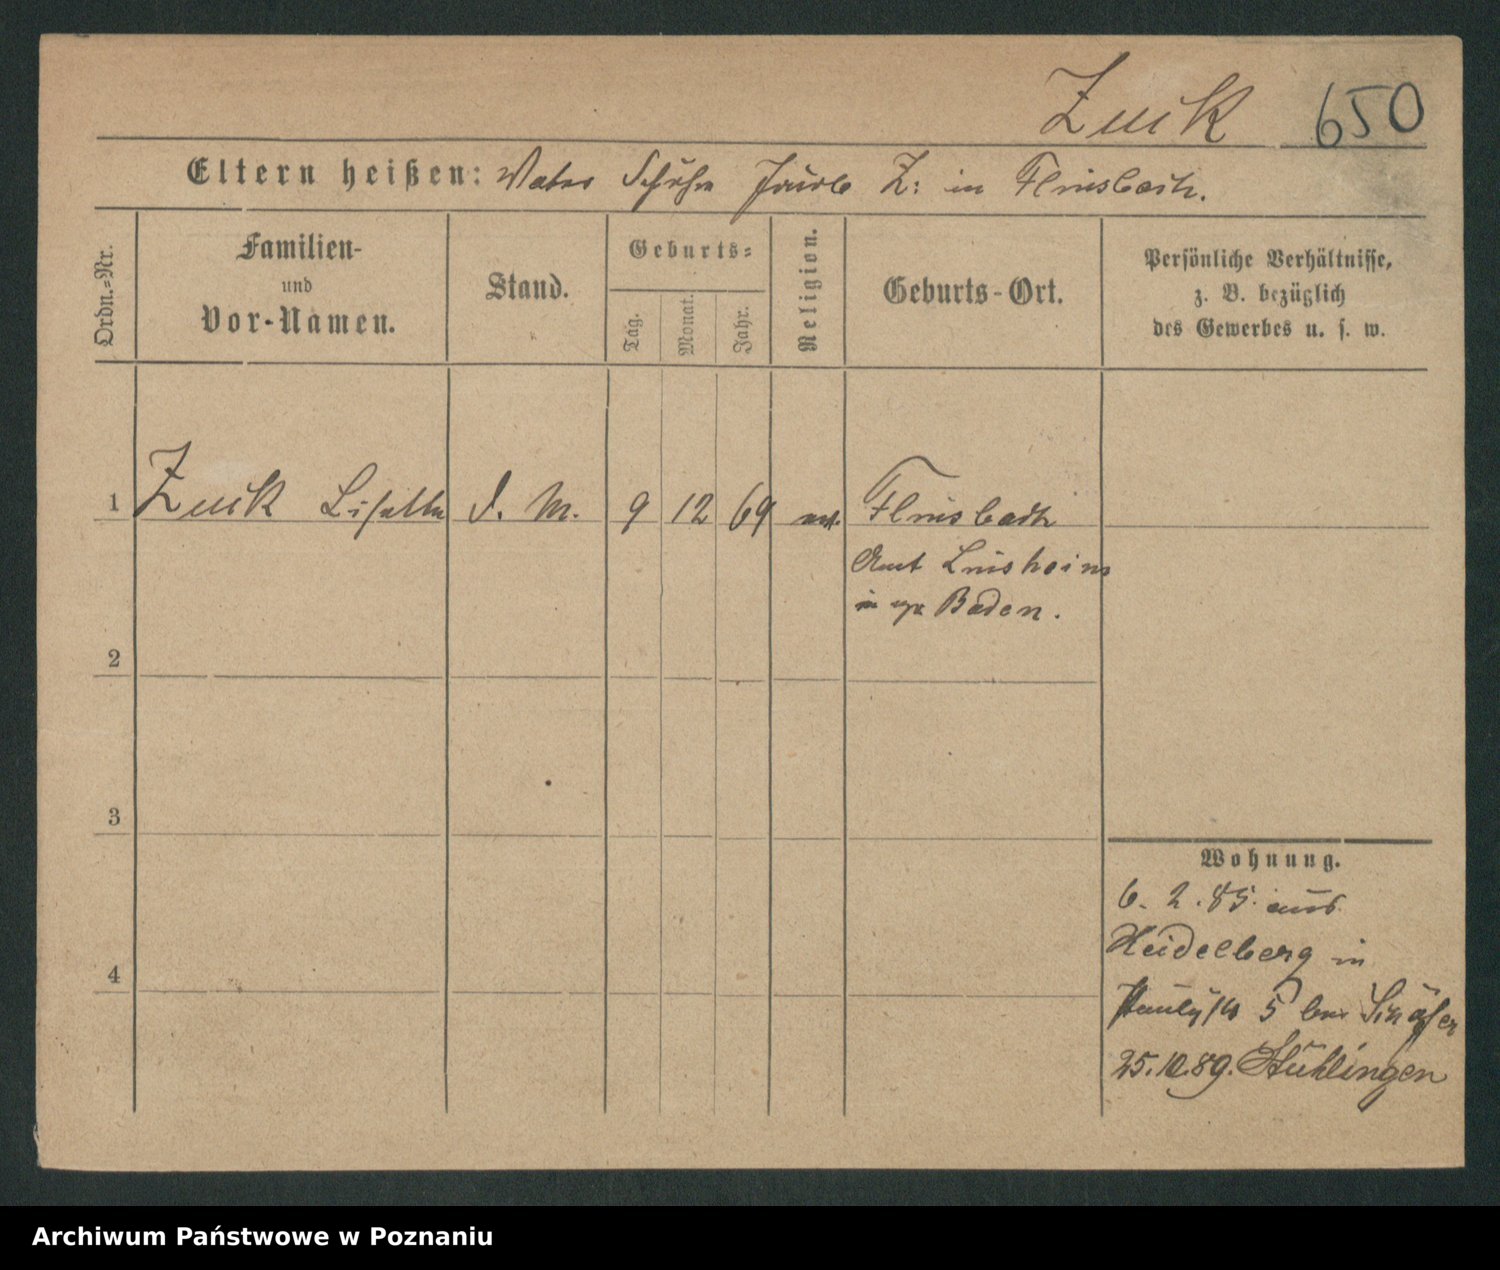 Zuck 650
Eltern heißen: Vater Jakob Z: in Flinsbach.
Ordn.=Nr.
Familien-
und
Vor-Namen.
Stand.
Geburts=
Tag.
Monat.
Jahr.
Religion.
Geburts-Ort.
Persönliche Verhältnisse,
z. B. bezüglich
des Gewerbes u. s. w.
1 Zuck Lisette d. M. 9 12 69 ev. Flinsbach
Amt Sinsheim
in Baden.
2
3
4
Wohnung.
6. 2. 85. aus
Heidelberg in
5 bei Schäfer
25.10.89. Stühlingen
Archiwum Państwowe w Poznaniu